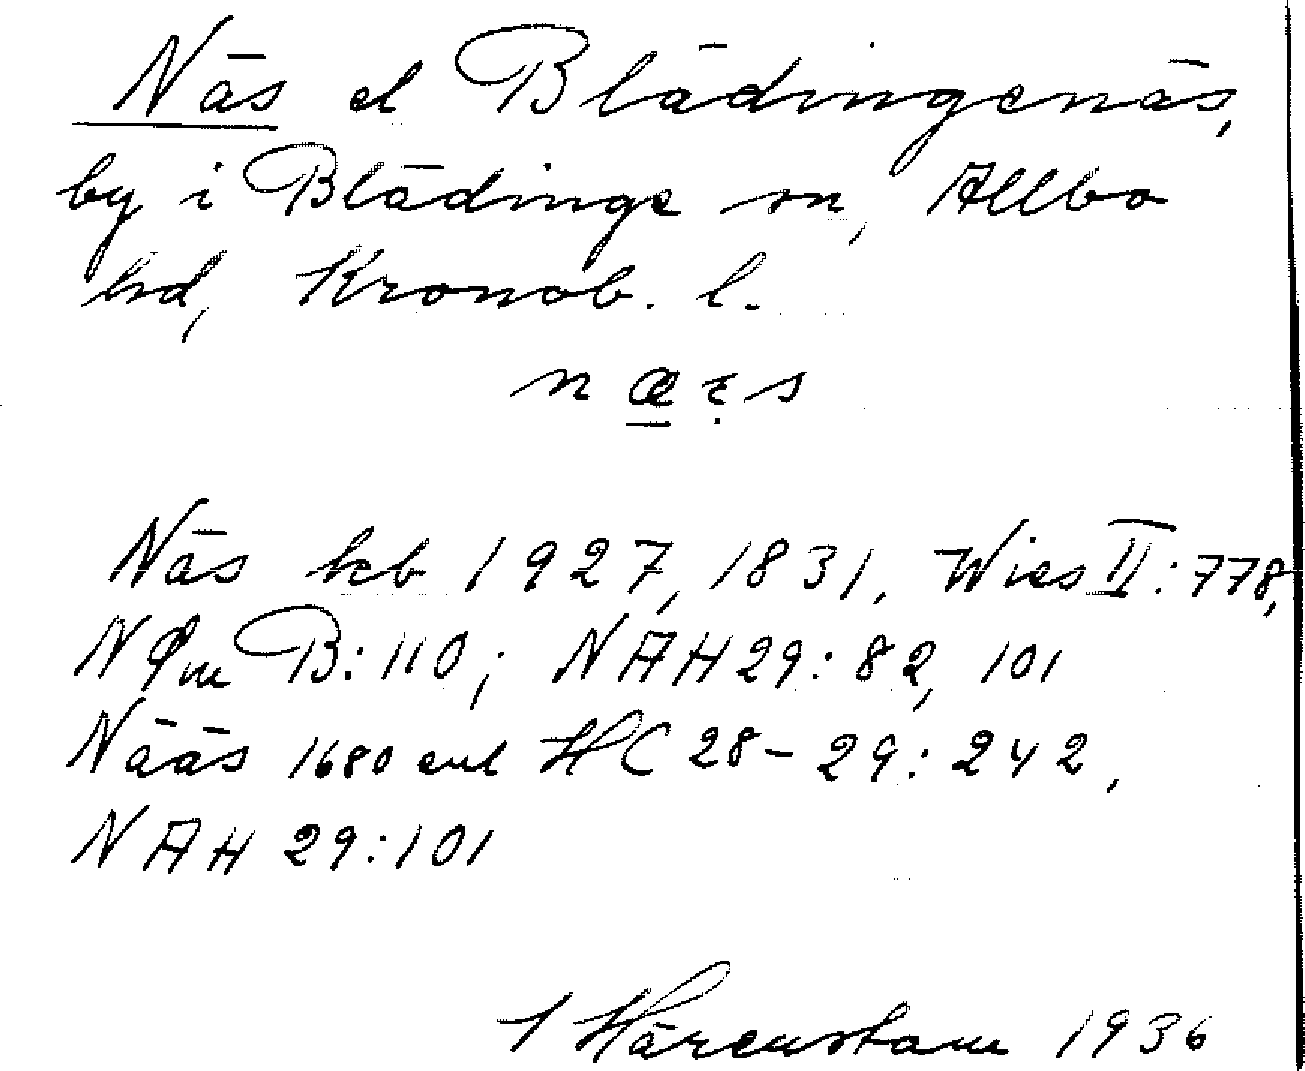 Näs el Blädingenäs,
by i Blädinge sn, Allbo
hd, Kronob. l.
næ̱ɛ̣s
Näs kcb 1927, 1831, Wies II: 778,
NOm B: 110; NAH 29: 82, 101
Nääs 1680 enl HC 28-29: 242,
NAH 29: 101
I Härenstam 1936